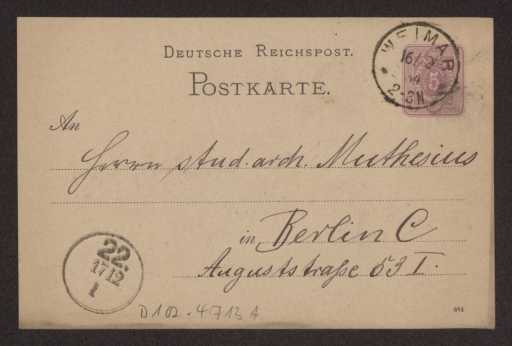 DEUTSCHE REICHSPOST.
POSTKARTE.
WEIMAR
2-3N
5
An
Herrn stud. arch. Muthesius
in Berlin C
Auguststraße 53 I.
22.
17 12
1
D 102-4713 A